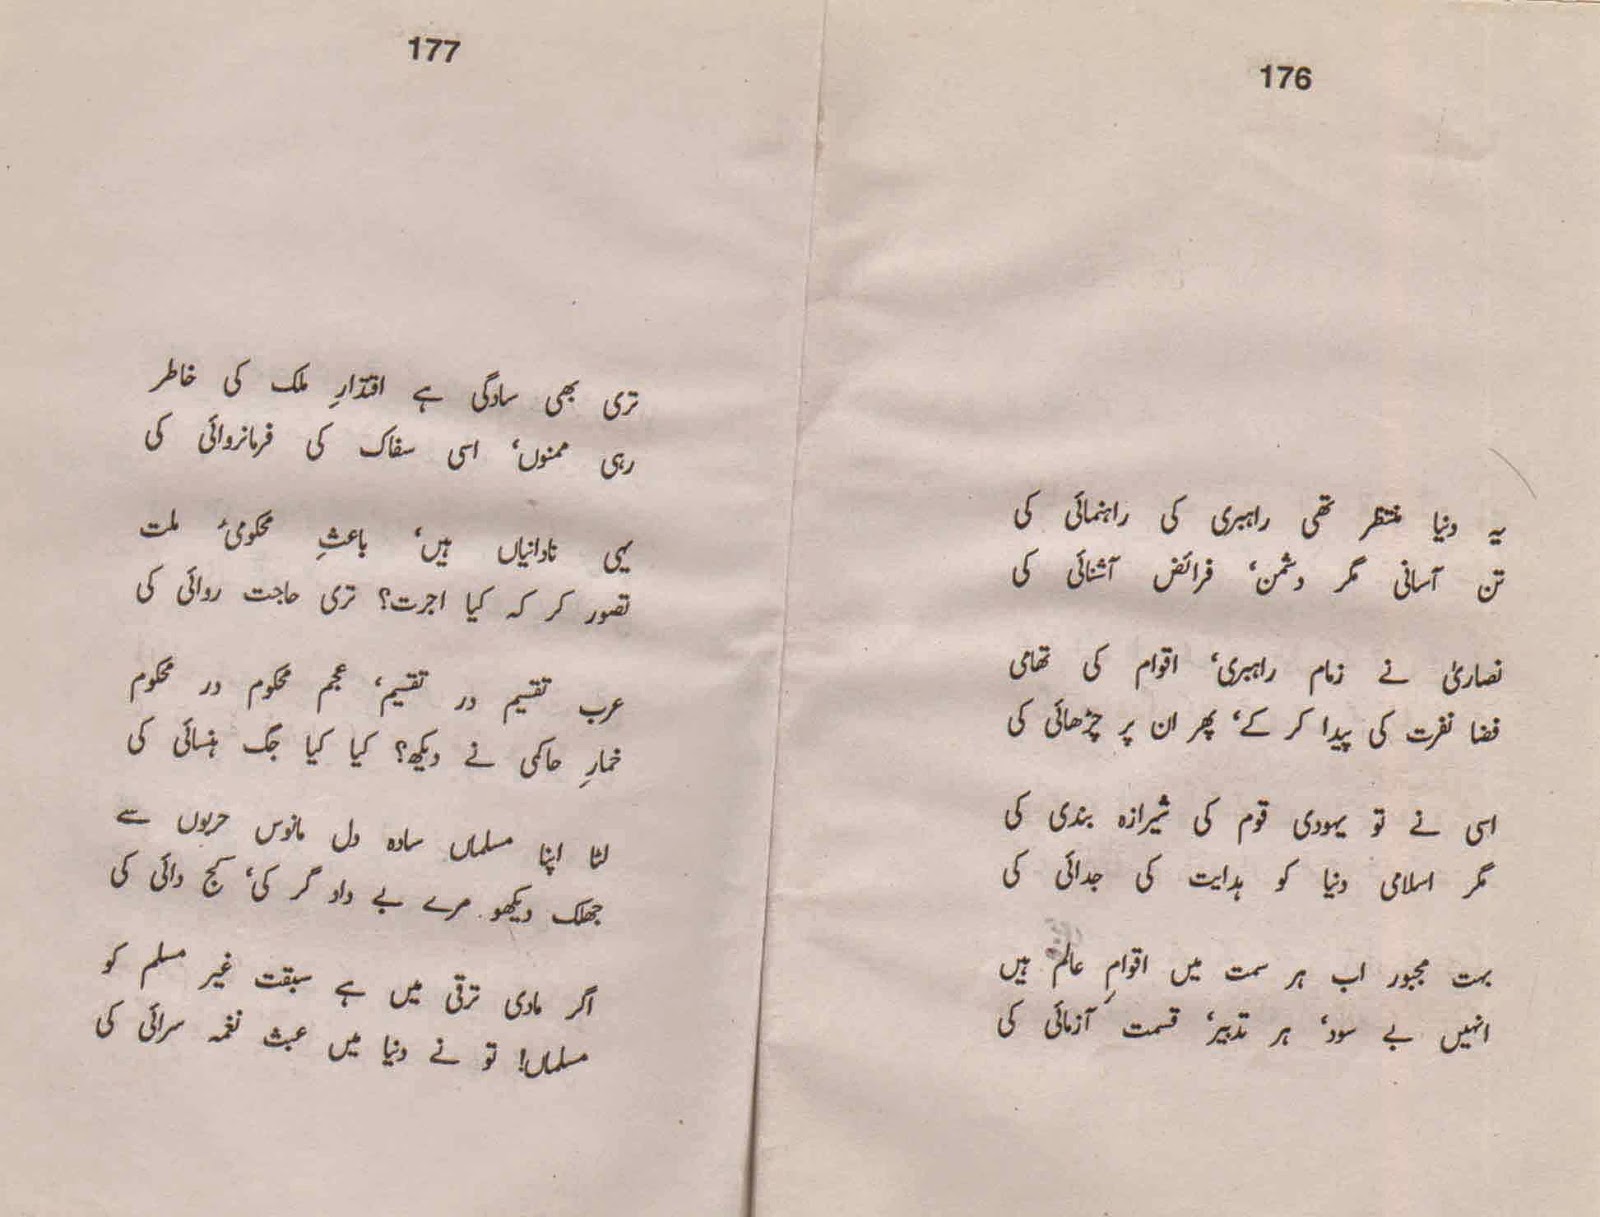 176
یہ دنیا منتظر تھی راہبری کی راہنمائی کی
تن آسانی مگر دشمن، فرائض آشنائی کی
نصاریٰ نے زمام راہبری، اقوام کی تھامی
فضا نفرت کی پیدا کر کے، پھر ان پر چڑھائی کی
اسی نے تو یہودی قوم کی شیرازہ بندی کی
مگر اسلامی دنیا کو ہدایت کی جدائی کی
بہت مجبور اب ہر سمت میں اقوامِ عالم ہیں
انہیں بے سود، ہر تدبیر، قسمت آزمائی کی
177
تری بھی سادگی ہے اقتدارِ ملک کی خاطر
رہی ممنوں، اسی سفاک کی فرمانروائی کی
یہی نادانیاں ہیں، باعثِ محکومیٔ ملت
تصور کر کہ کیا اجرت؟ تری حاجت روائی کی
عرب تقسیم در تقسیم، عجم محکوم در محکوم
خمارِ حاکمی نے دیکھ؟ کیا کیا جگ ہنسائی کی
لٹا اپنا مسلماں سادہ دل مانوس حربوں سے
جھلک دیکھو مرے بے داد گر کی، کج دائی کی
اگر مادی ترقی میں ہے سبقت غیر مسلم کو
مسلماں! تو نے دنیا میں عبث نغمہ سرائی کی